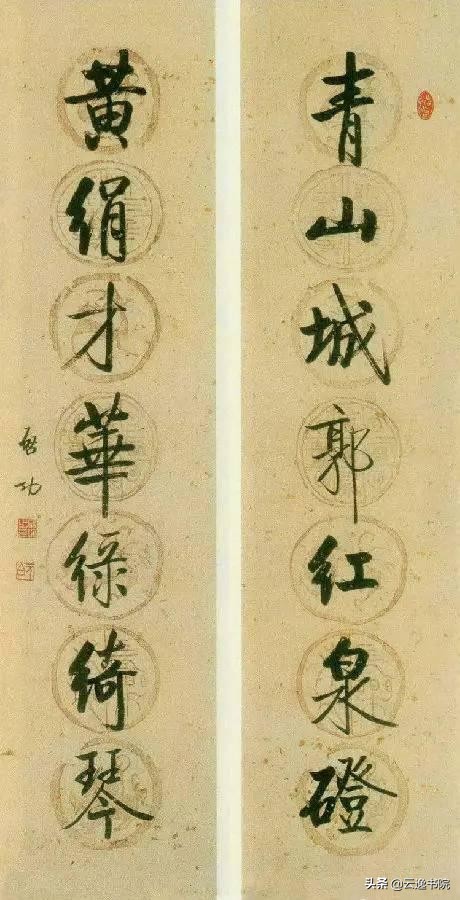 青山城郭红泉磴
黄绢才華绿綺琴
启功
头条@云逸书院